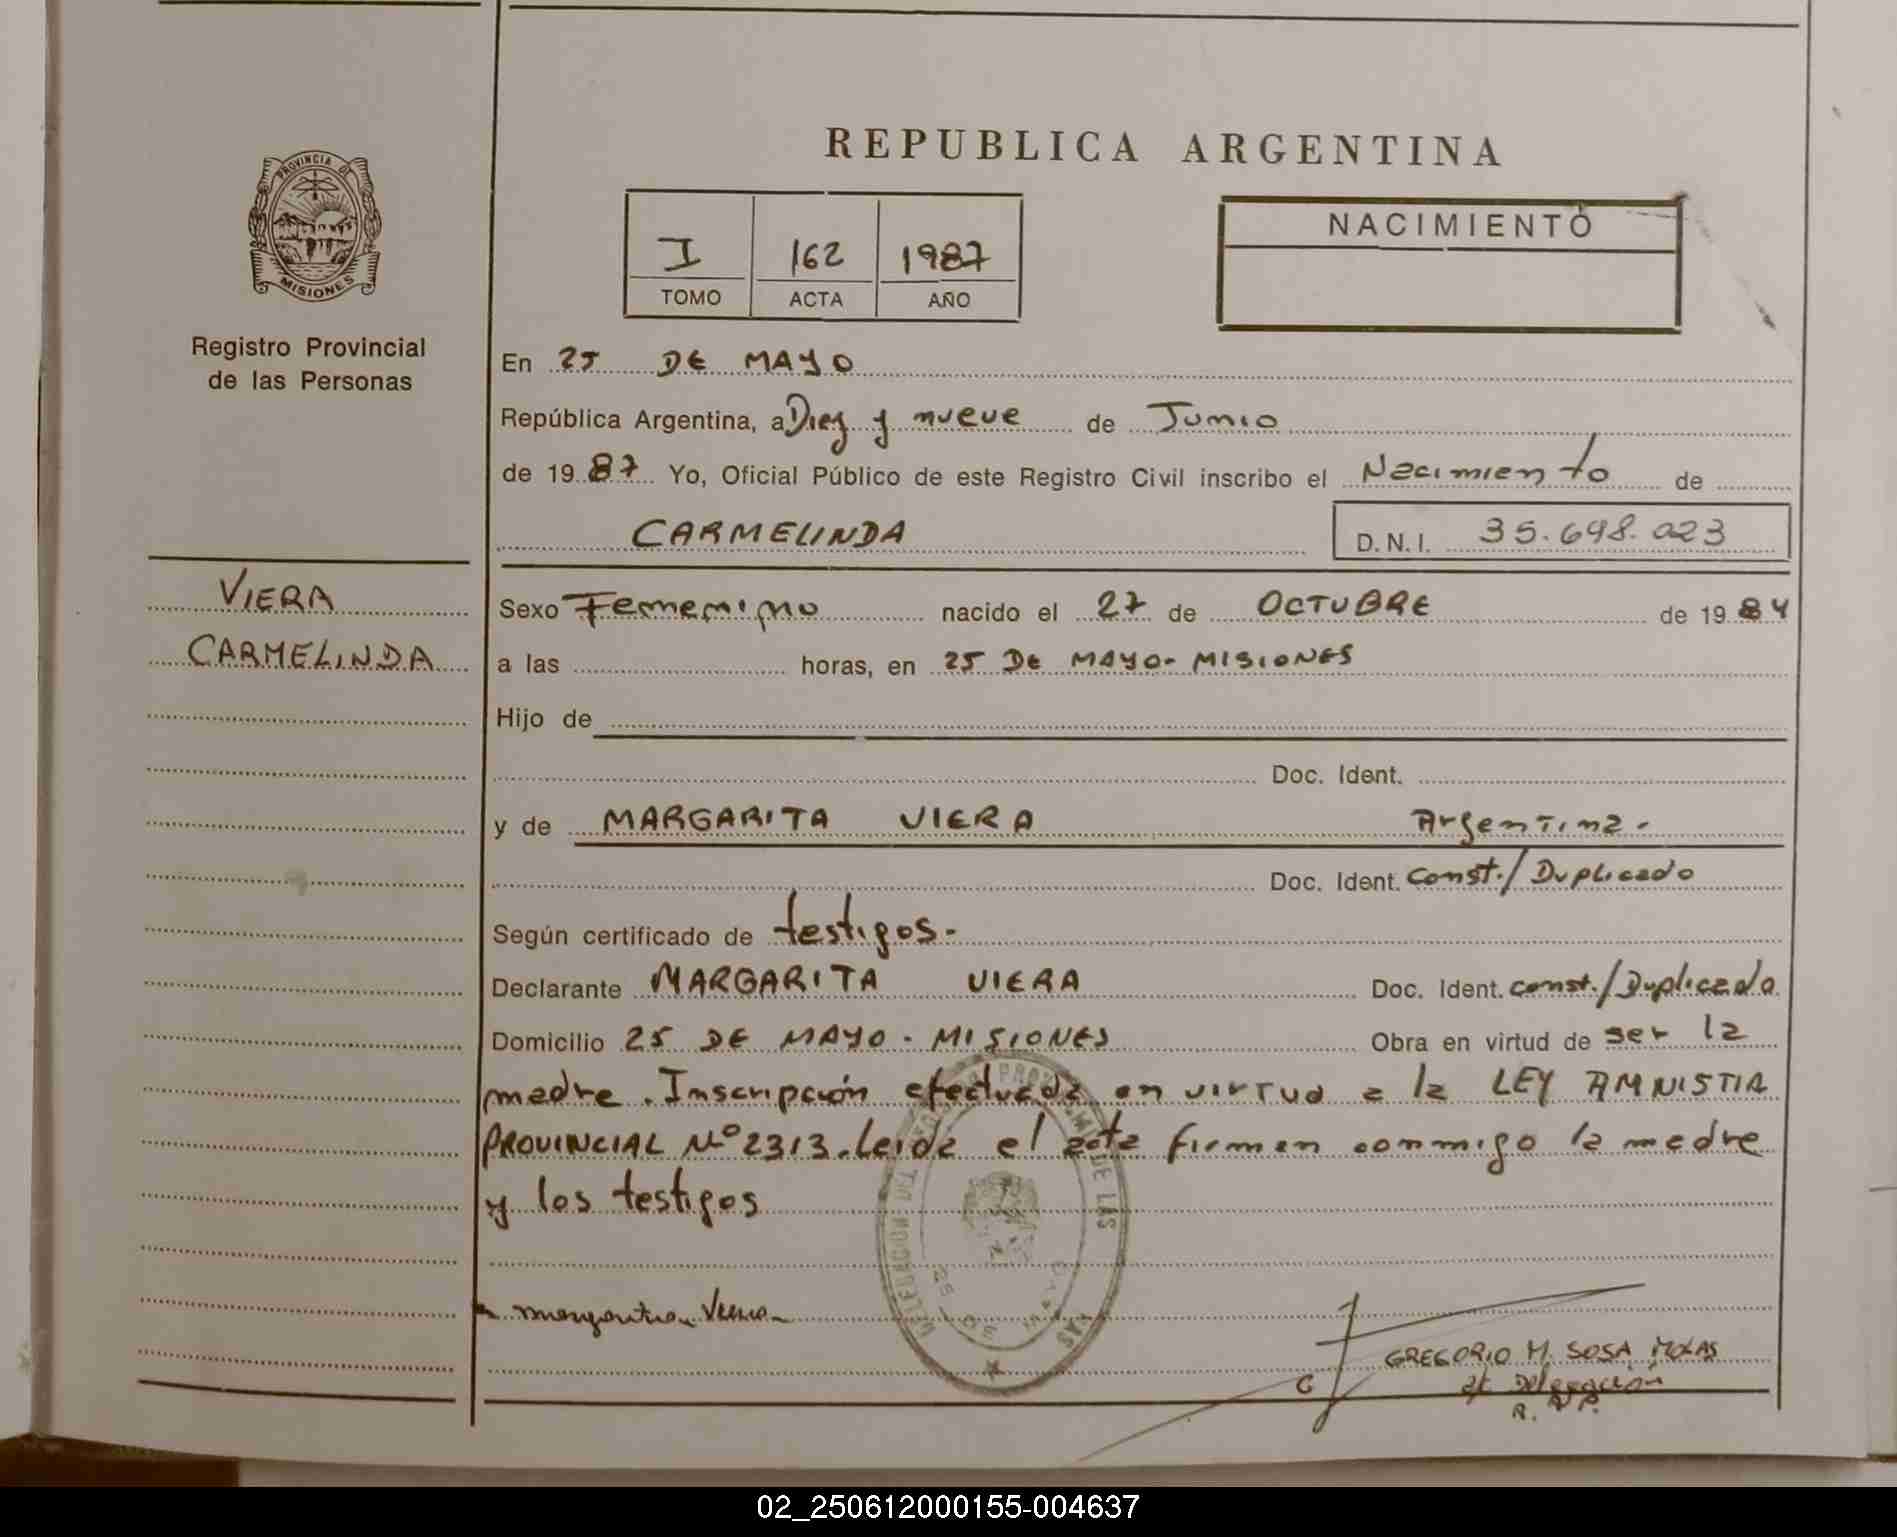 REPUBLICA ARGENTINA
PROVINCIA DE
MISIONES
Registro Provincial
de las Personas
I 162 1987
TOMO ACTA AÑO
NACIMIENTO
En 25 DE MAYO
República Argentina, a Diez y nueve de Junio
de 1987 Yo, Oficial Público de este Registro Civil inscribo el Nacimiento de
CARMELINDA D.N.I. 35.698.023
VIERA
CARMELINDA
Sexo Femenino nacido el 27 de OCTUBRE de 1984
a las horas, en 25 DE MAYO - MISIONES
Hijo de
Doc. Ident.
y de MARGARITA VIERA Argentina.
Doc. Ident. Const./Duplicado
Según certificado de testigos.
Declarante MARGARITA VIERA Doc. Ident. const./Duplicado
Domicilio 25 DE MAYO - MISIONES Obra en virtud de ser la
madre. Inscripción efectuada en virtud a la LEY AMNISTIA
PROVINCIAL Nº 2313. Leida el acta firman conmigo la madre
y los testigos
DELEGACION DEL PROVINCIAL DE LAS
25 DE MAYO
margarita Viera
GREGORIO M. SOSA
Delegación
02_250612000155-004637